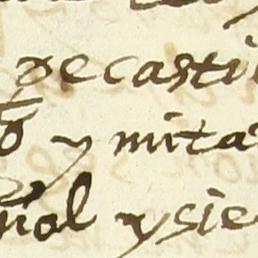 de casti
o y mitad
ñol y sie